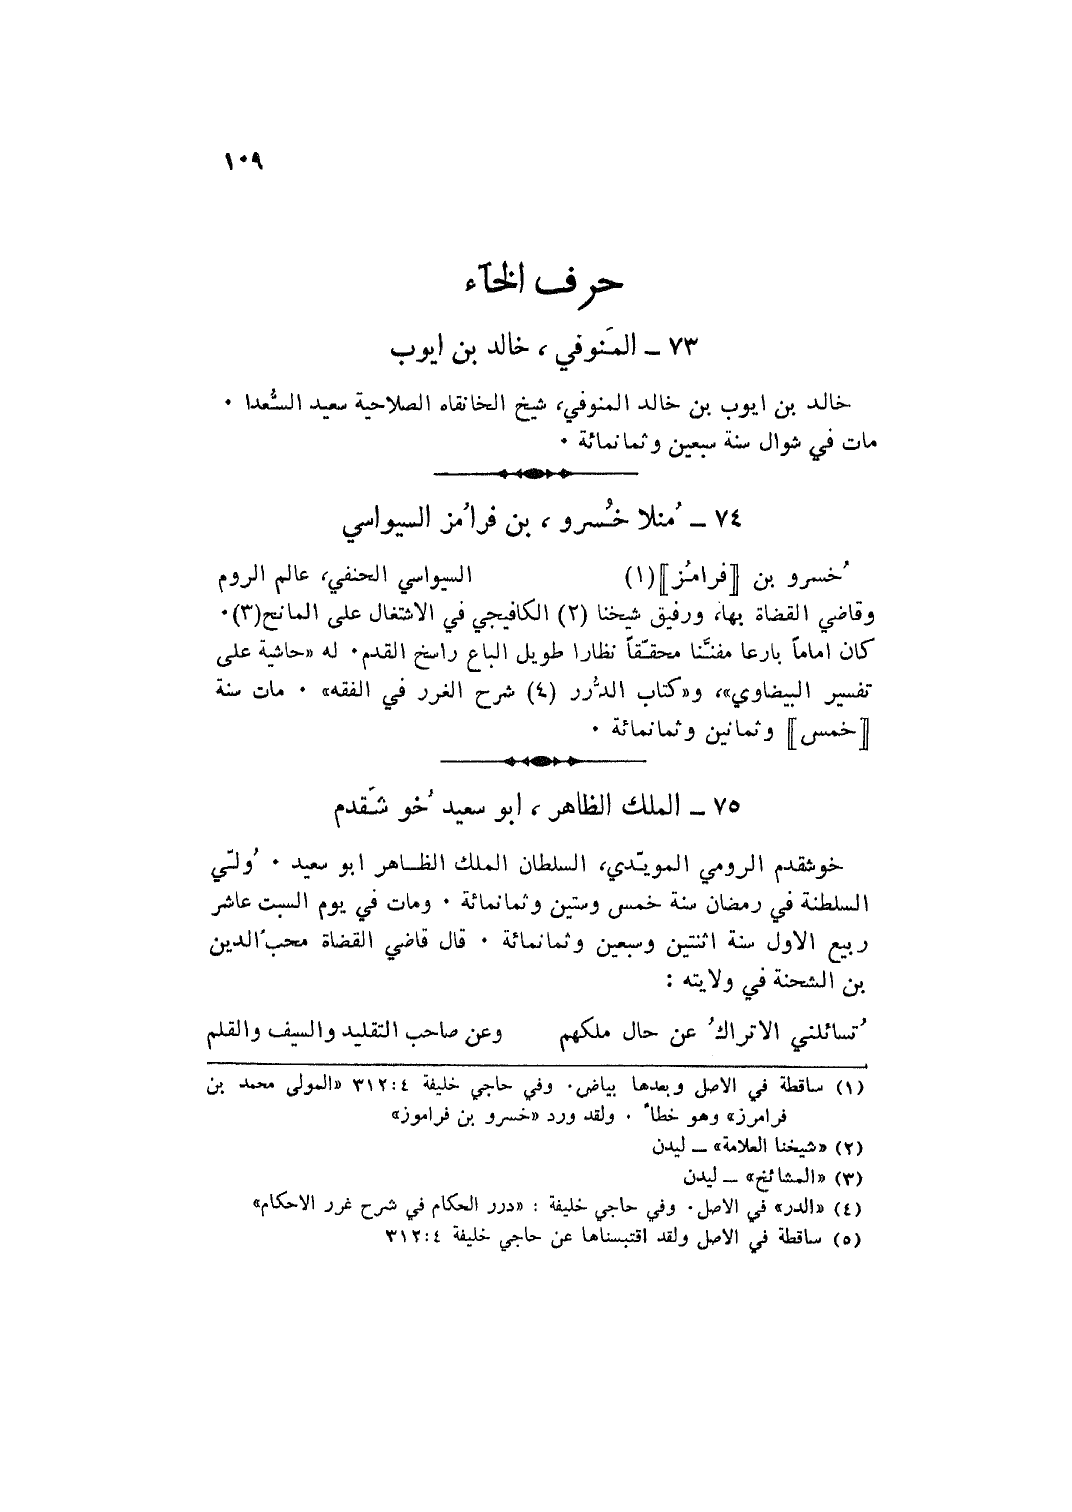 ١٠٩
حرف الخآء
٧٣ ـ المَنوفي ، خالد بن ايوب
خالد بن ايوب بن خالد المنوفي، شيخ الخانقاه الصلاحية سعيد السُّعدا ٠
مات في شوال سنة سبعين وثمانمائة ٠
٧٤ ـ مُنلا خُسرو ، بن فرامُز السيواسي
خُسرو بن [[فرامُز]](١) السيواسي الحنفي، عالم الروم
وقاضي القضاة بها، ورفيق شيخنا (٢) الكافيجي في الاشتغال على المانح(٣)٠
كان اماماً بارعا مفنَّنا محقّقاً نظارا طويل الباع راسخ القدم٠ له «حاشية على
تفسير البيضاوي»، و«كتاب الدُّرر (٤) شرح الغرر في الفقه» ٠ مات سنة
[[خمس]] وثمانين وثمانمائة ٠
٧٥ ـ الملك الظاهر ، ابو سعيد خُو شَقدم
خوشقدم الرومي المويّدي، السلطان الملك الظاهر ابو سعيد ٠ وُلّي
السلطنة في رمضان سنة خمس وستين وثمانمائة ٠ ومات في يوم السبت عاشر
ربيع الاول سنة اثنتين وسبعين وثمانمائة ٠ قال قاضي القضاة محبّ الدين
بن الشحنة في ولايته :
تُسائلني الاتراكُ عن حال ملكهم وعن صاحب التقليد والسيف والقلم
(١) ساقطة في الاصل وبعدها بياض٠ وفي حاجي خليفة ٣١٢:٤ «المولى محمد بن
فرامرز» وهو خطأ ٠ ولقد ورد «خسرو بن فراموز»
(٢) «شيخنا العلامة» ـ ليدن
(٣) «المشائخ» ـ ليدن
(٤) «الدر» في الاصل٠ وفي حاجي خليفة : «درر الحكام في شرح غرر الاحكام»
(٥) ساقطة في الاصل ولقد اقتبسناها عن حاجي خليفة ٣١٢:٤